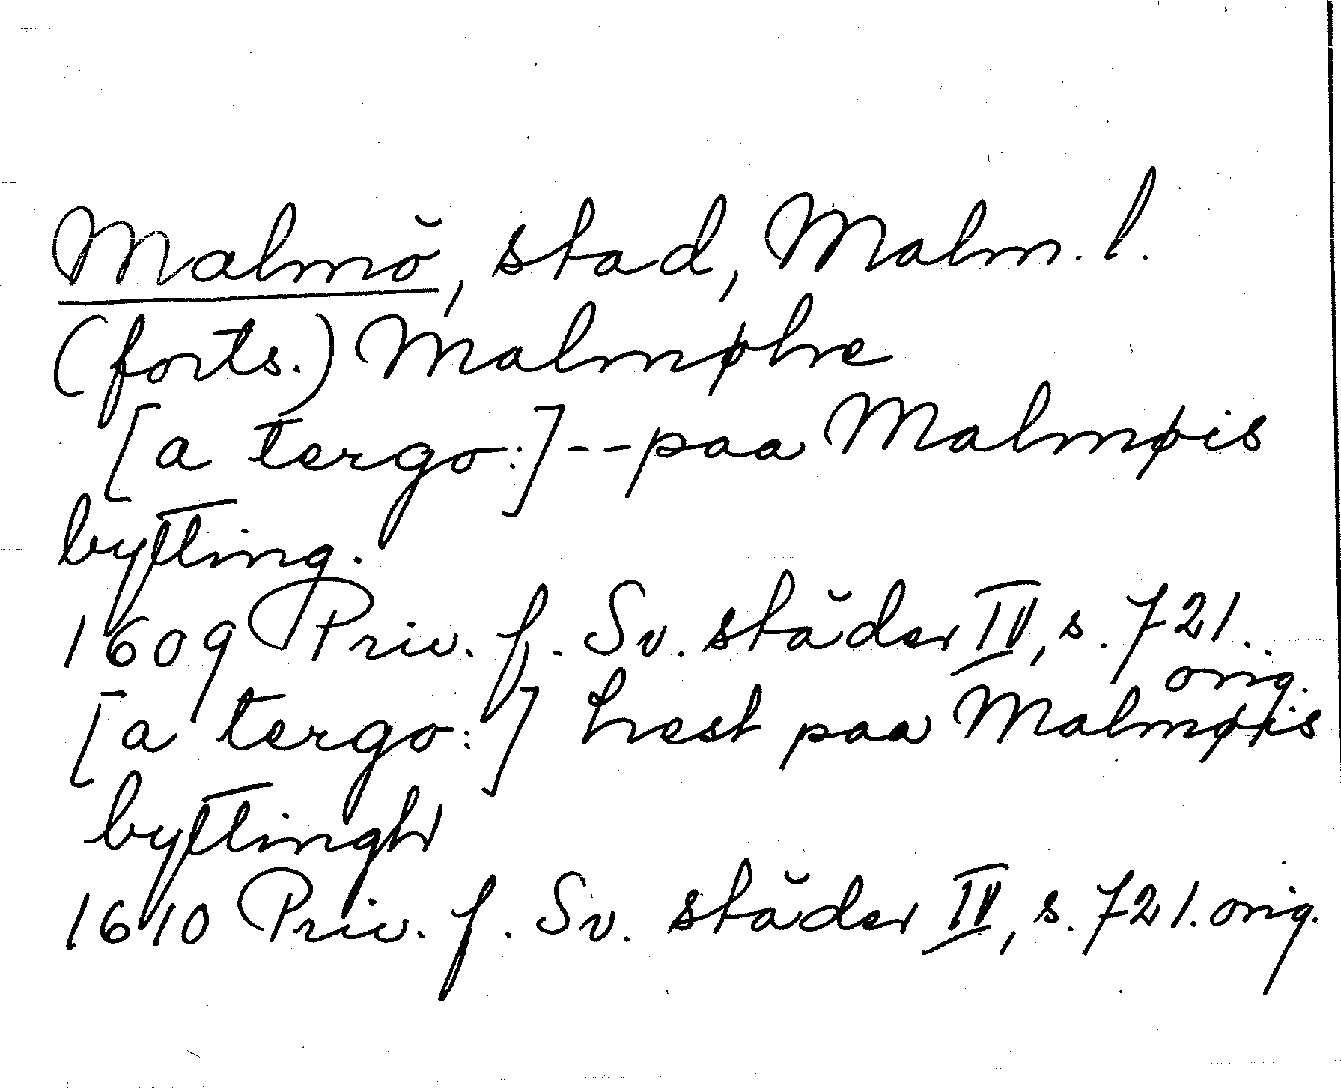 Malmö, stad, Malm. l.
(forts.) Malmøhre
[a tergo:]--paa Malmøis
bytting.
1609 Priv. f. Sv. städer IV, s. 721.
orig.
[a tergo:] hrest paa Malmøiis
byttingh
1610 Priv. f. Sv. städer IV, s. 721. orig.